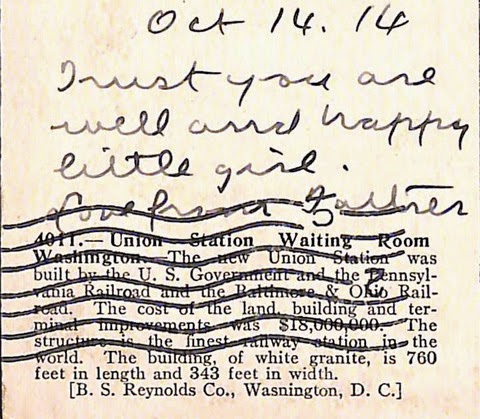 Oct 14. 14
Trust you are
well and happy
little girl.
Love from Father
4011.—Union Station Waiting Room
Washington. The new Union Station was
built by the U. S. Government and the Pennsyl-
vania Railroad and the Baltimore & Ohio Rail-
road. The cost of the land, building and ter-
minal improvements was $18,000,000. The
structure is the finest railway station in the
world. The building, of white granite, is 760
feet in length and 343 feet in width.
[B. S. Reynolds Co., Wasnington, D. C.]